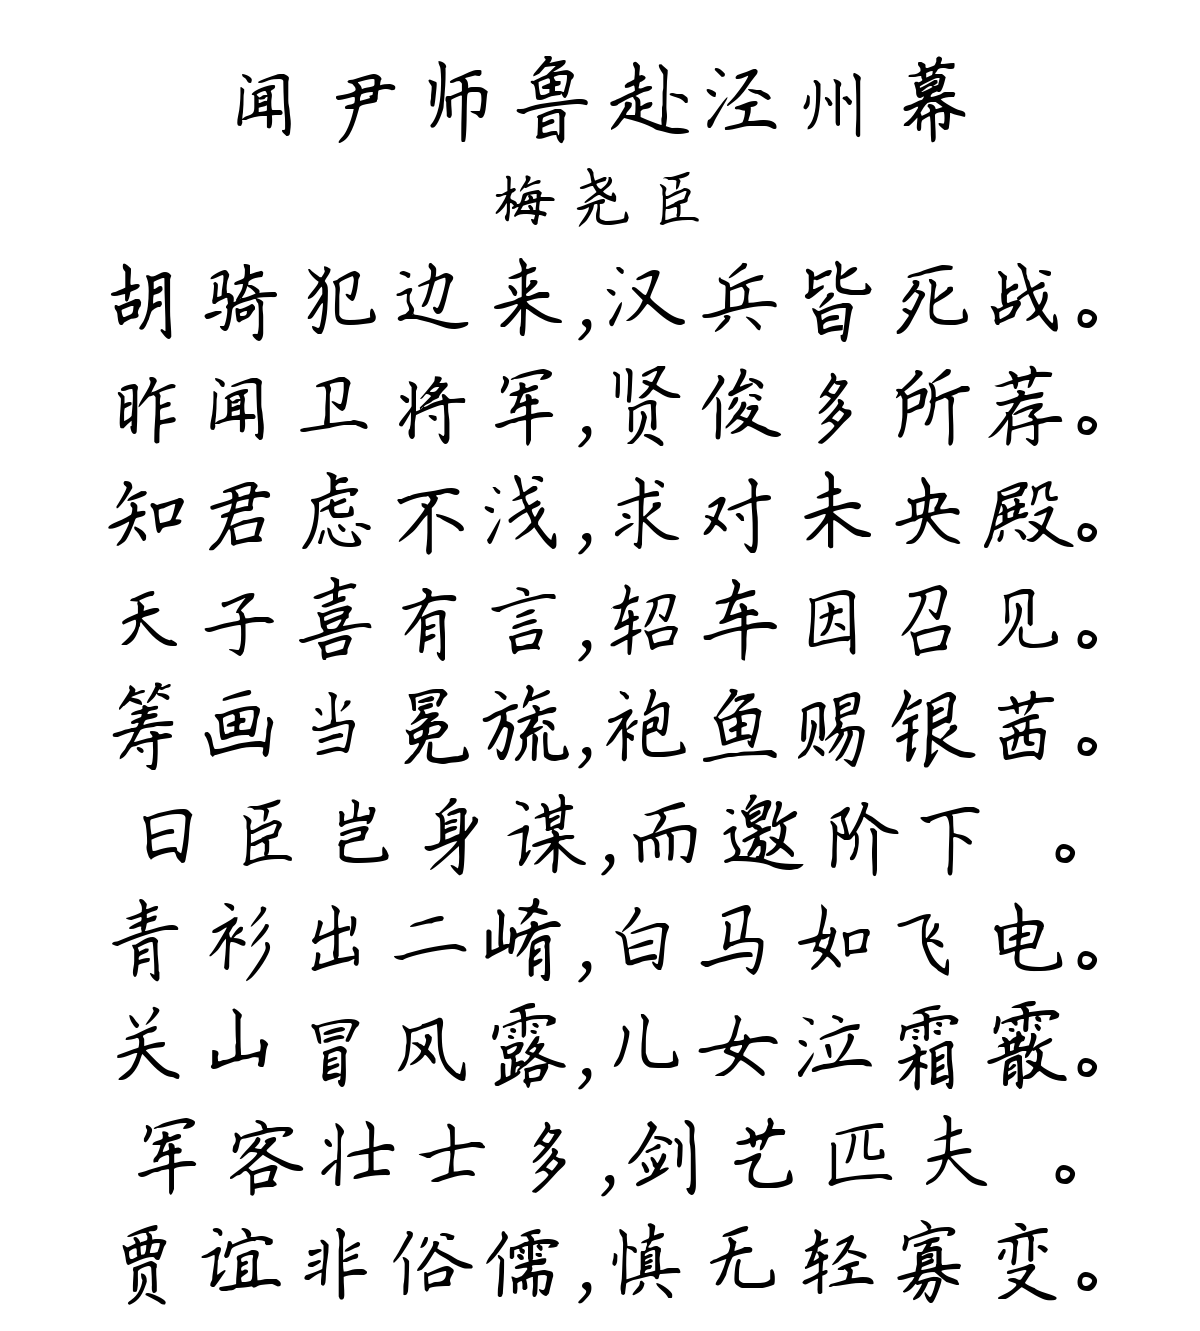 闻尹师鲁赴泾州幕
梅尧臣
胡骑犯边来,汉兵皆死战。
昨闻卫将军,贤俊多所荐。
知君虑不浅,求对未央殿。
天子喜有言,轺车因召见。
筹画当冕旒,袍鱼赐银茜。
曰臣岂身谋,而邀阶下 。
青衫出二崤,白马如飞电。
关山冒风露,儿女泣霜霰。
军客壮士多,剑艺匹夫 。
贾谊非俗儒,慎无轻寡变。